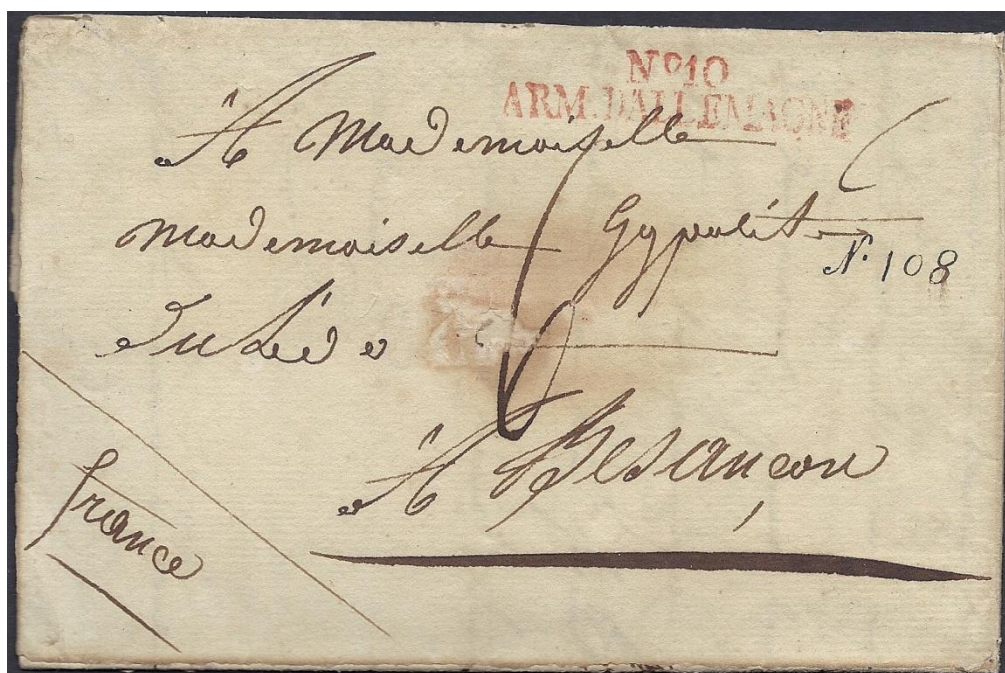 No 10
ARM. D'ALLEMAGNE
A Mademoiselle
Mademoiselle Gypolite
N. 108
A Besançon
france